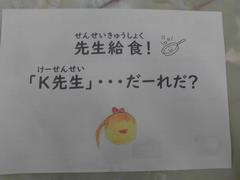 せんせいきゅうしょく
先生給食!
けーせんせい
「K先生」・・・だーれだ?